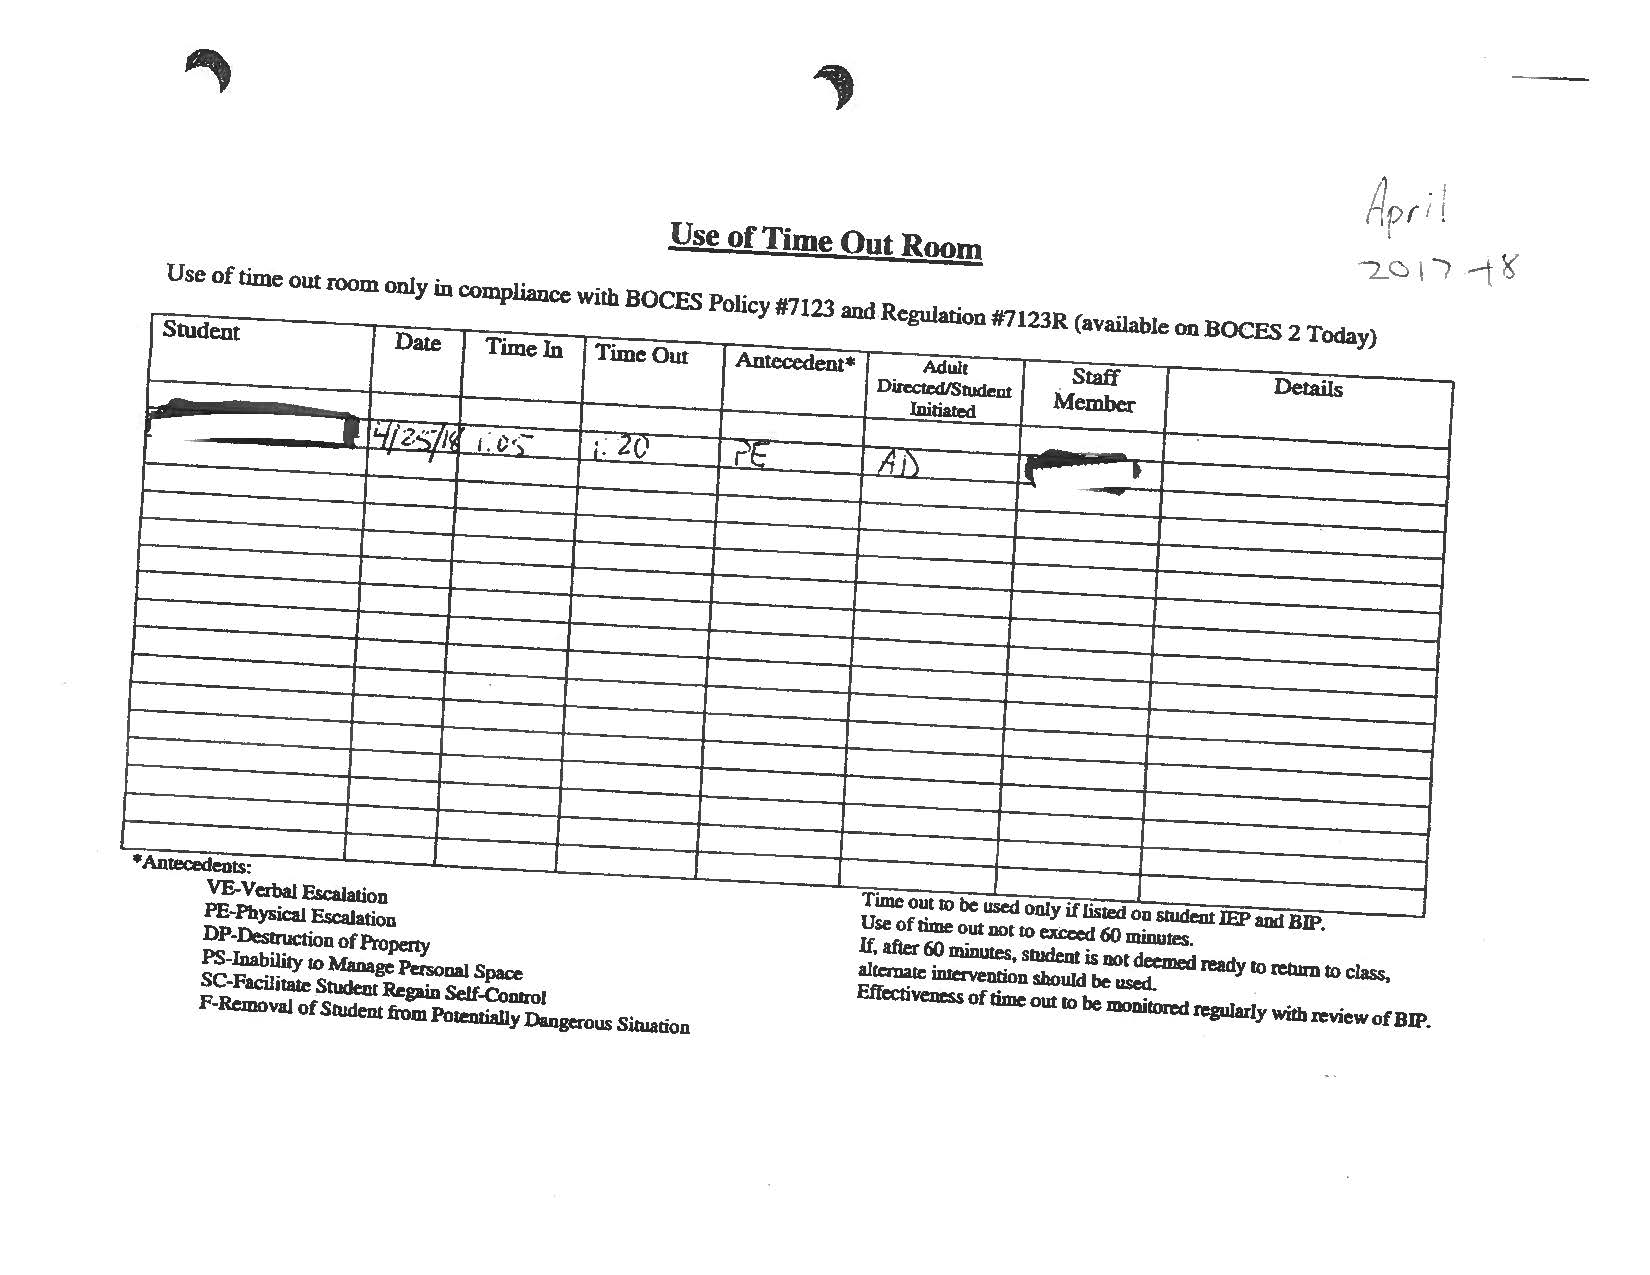 April
2017-18
Use of Time Out Room
Use of time out room only in compliance with BOCES Policy #7123 and Regulation #7123R (available on BOCES 2 Today)
Student Date Time In Time Out Antecedent* Adult Directed/Student Initiated Staff Member Details
4/25/18 1:05 1:20 PE AD
*Antecedents:
VE-Verbal Escalation
PE-Physical Escalation
DP-Destruction of Property
PS-Inability to Manage Personal Space
SC-Facilitate Student Regain Self-Control
F-Removal of Student from Potentially Dangerous Situation
Time out to be used only if listed on student IEP and BIP.
Use of time out not to exceed 60 minutes.
If, after 60 minutes, student is not deemed ready to return to class,
alternate intervention should be used.
Effectiveness of time out to be monitored regularly with review of BIP.